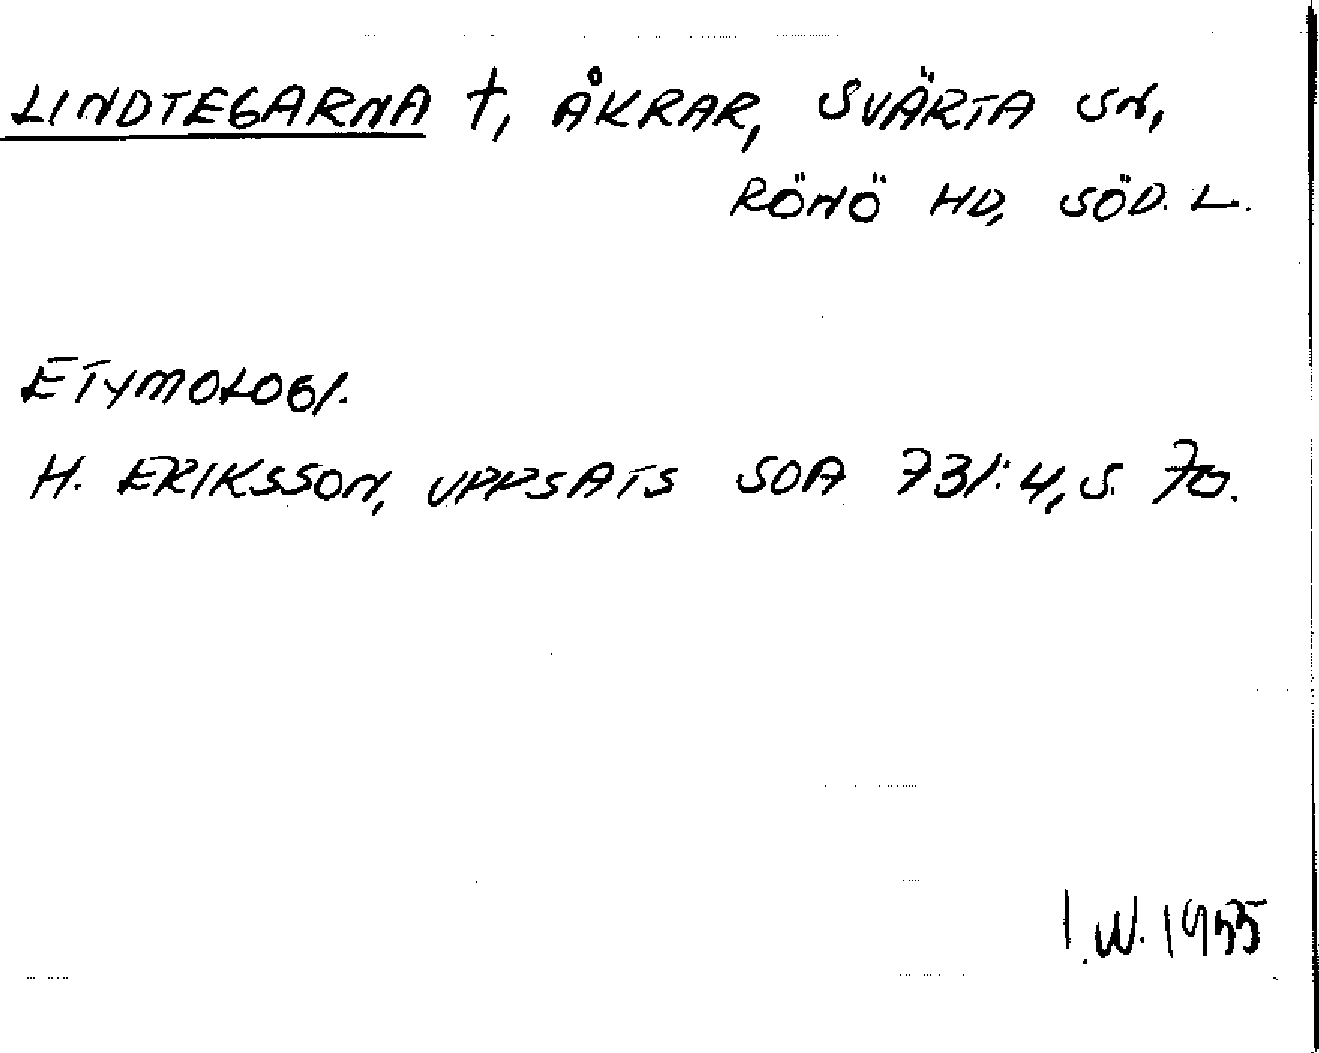 LINDTEGARNA †, ÅKRAR, SVÄRTA SN,
RÖNÖ HD, SÖD. L.
ETYMOLOGI.
H. ERIKSSON, UPPSATS SOA 731:4, S. 70.
I.W. 1955